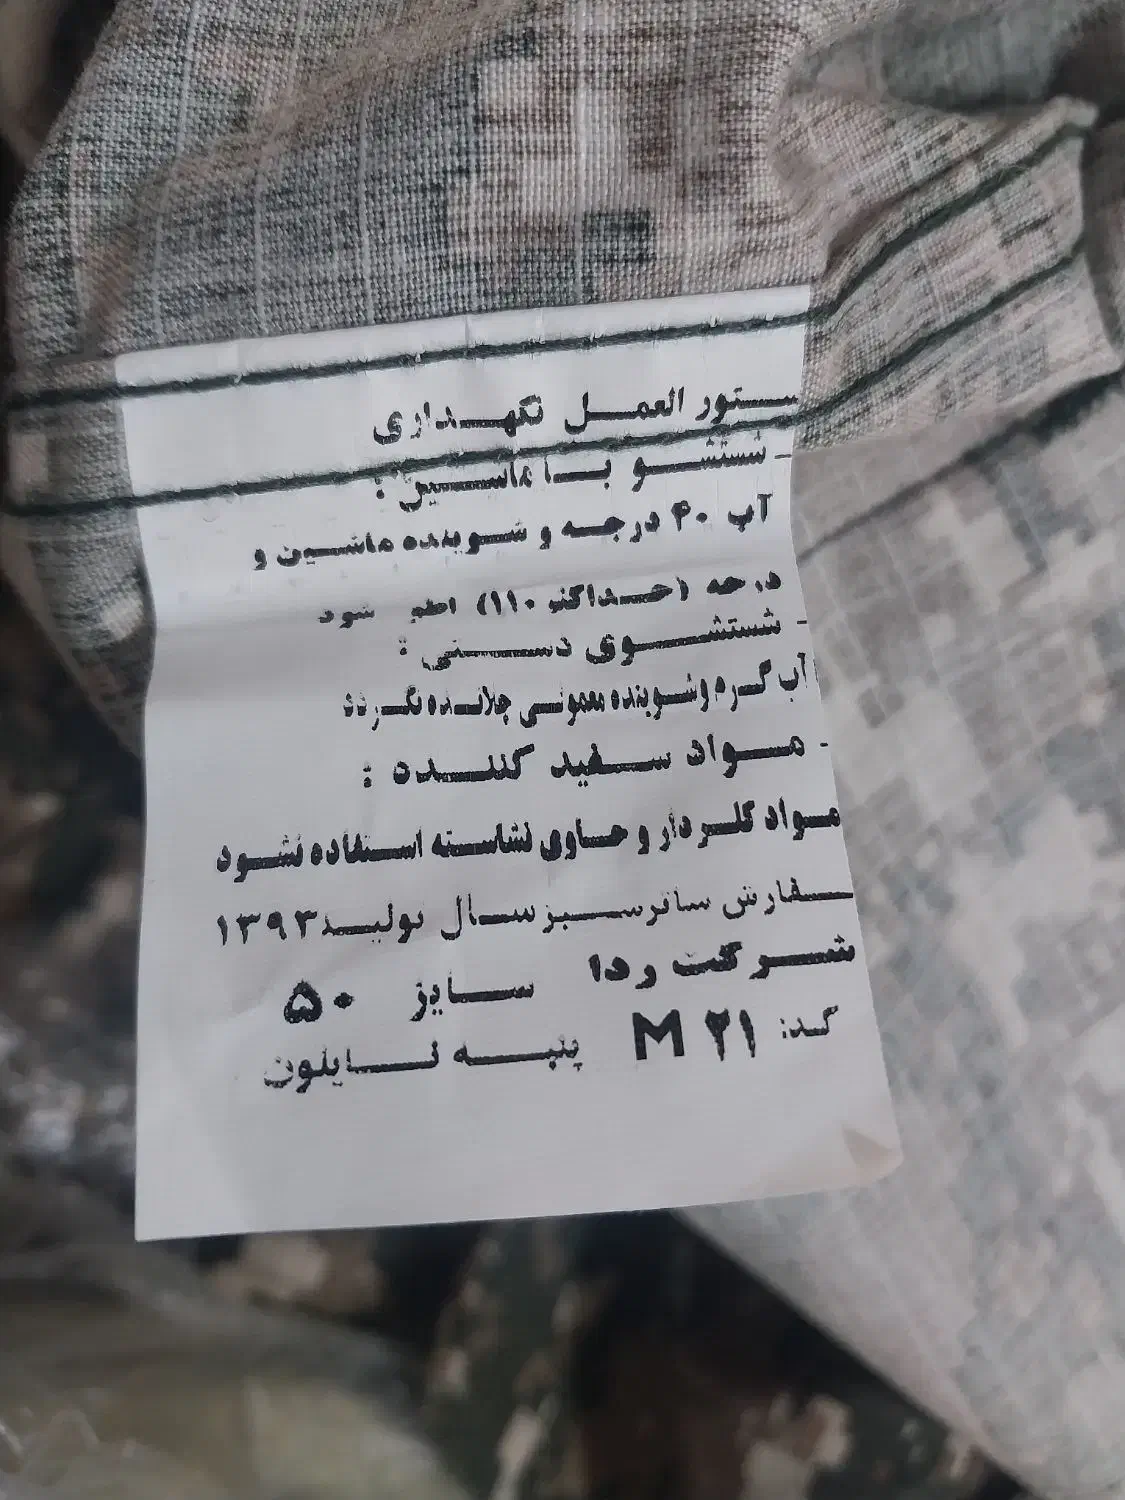 ستور العمل نگهداری
- شستشو با ماشین :
آب ۴۰ درجه و شوینده ماشین و
درجه (حداکثر ۱۱۰) اطو شود
- شستشوی دستی :
آب گرم و شوینده معمولی چلانده نگردد
- مواد سفید کننده :
مواد کلردار و حاوی نشاسته استفاده نشود
سفارش سال تولید ۱۳۹۳
شرکت ردا سایز ۵۰
کد: M ۲۱ پنبه نایلون